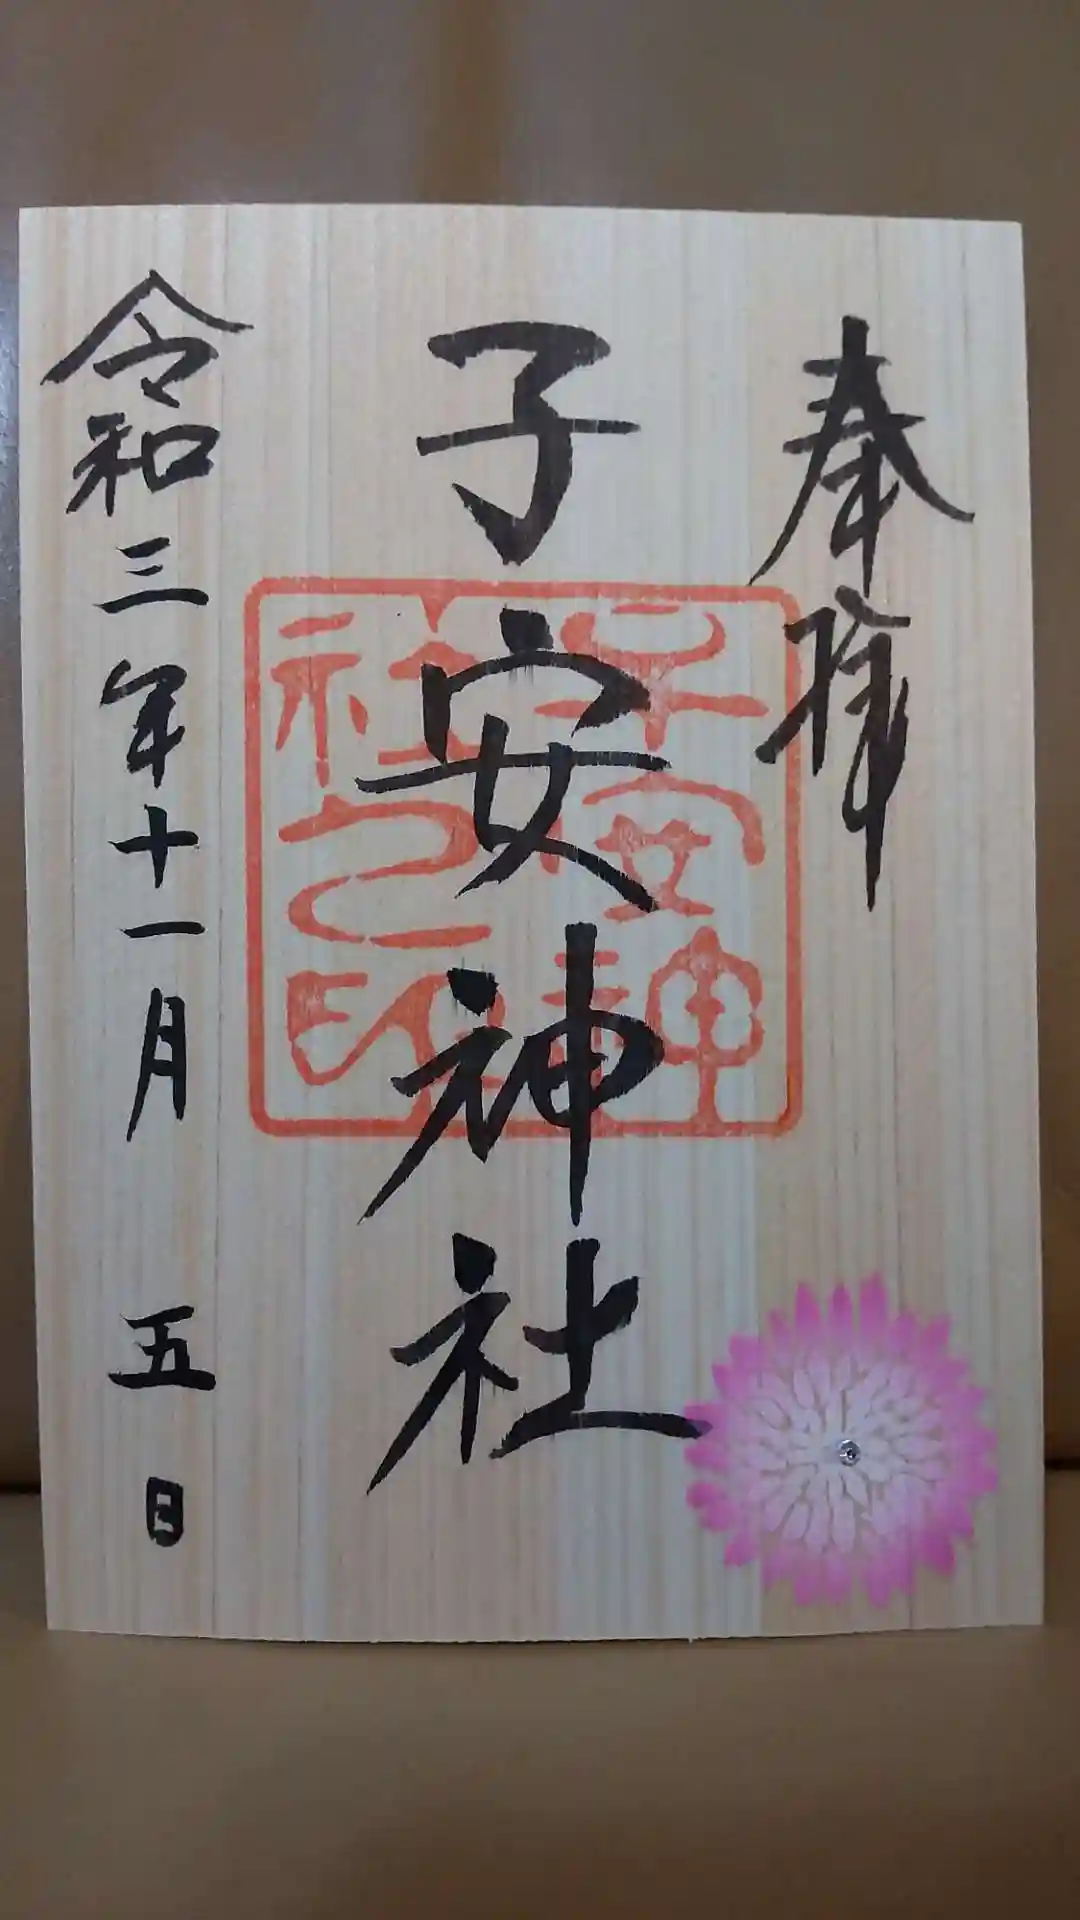 奉拝
子安神社
子安神
社之印
令和三年十一月五日